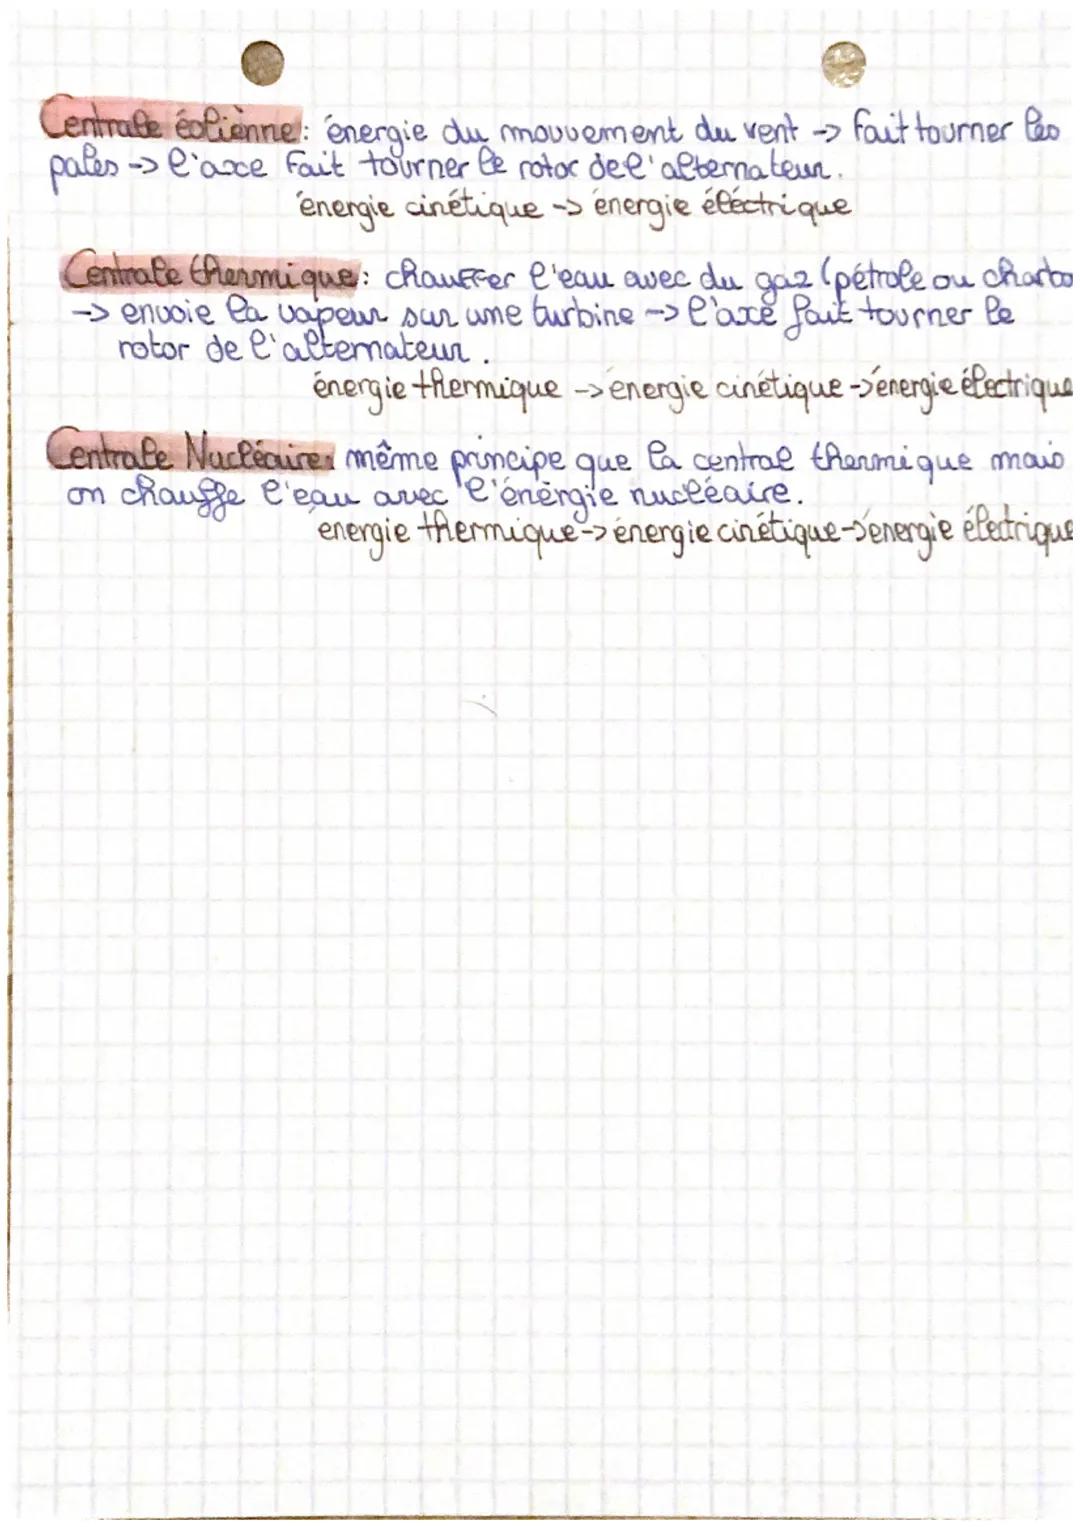 Centrale éolienne: énergie du mouvement du vent -> fait tourner les
pales -> l'axe fait tourner le rotor de l'alternateur.
énergie cinétique -> énergie éléctrique
Centrale thermique: chauffer l'eau avec du gaz (pétrole ou charbo
-> envoie la vapeur sur une turbine -> l'axe fait tourner le
rotor de l'alternateur.
énergie thermique -> énergie cinétique -> énergie électrique
Centrale Nucléaire: même principe que la central thermique mais
on chauffe l'eau avec l'énérgie nucléaire.
energie thermique -> énergie cinétique -> énergie électrique